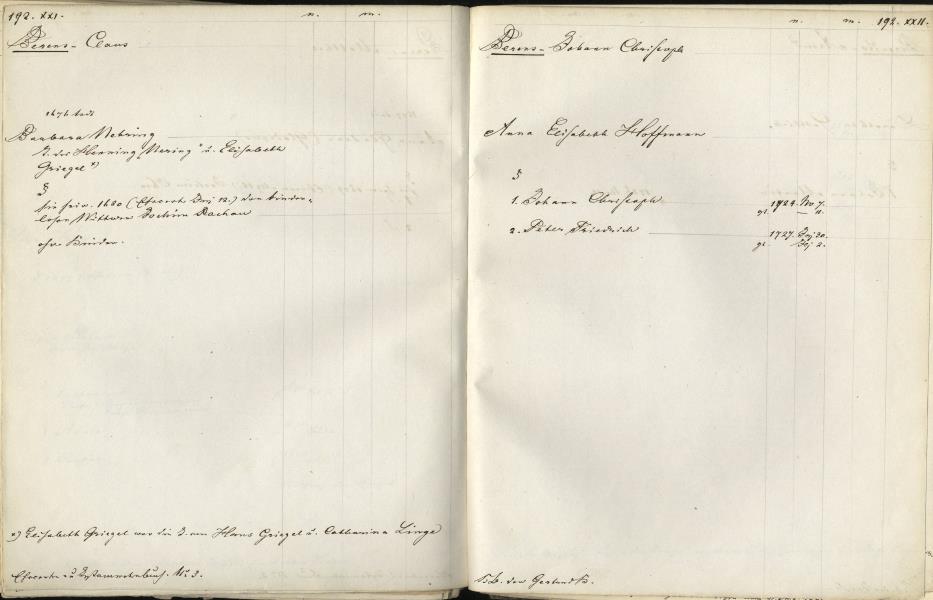 192. XXI. n. m.
Berens - Claus
1676 todt
Barbara Nehring
T. des Henning „Nering" u. Elisabeth
Griegel *)
§
sie heir. 1680 (Ehecont. Juj 12.) den kinder-
losen Wittwer Jochim Rachau
ohne Kinder.
*) Elisabeth Griegel war die T. von Hans Griegel u. Catharina Linge
Ehecontr. u. No 3.
n. m. 192. XXII.
Berens - Johann Christoph
Anna Elisabeth Hoffmann
§
1. Johann Christoph 1724. No 7.
gt. — 11.
2. Peter Friedrich 1727. Juj 30.
gt. Jlj 2.
K.b. der Gertrud K.